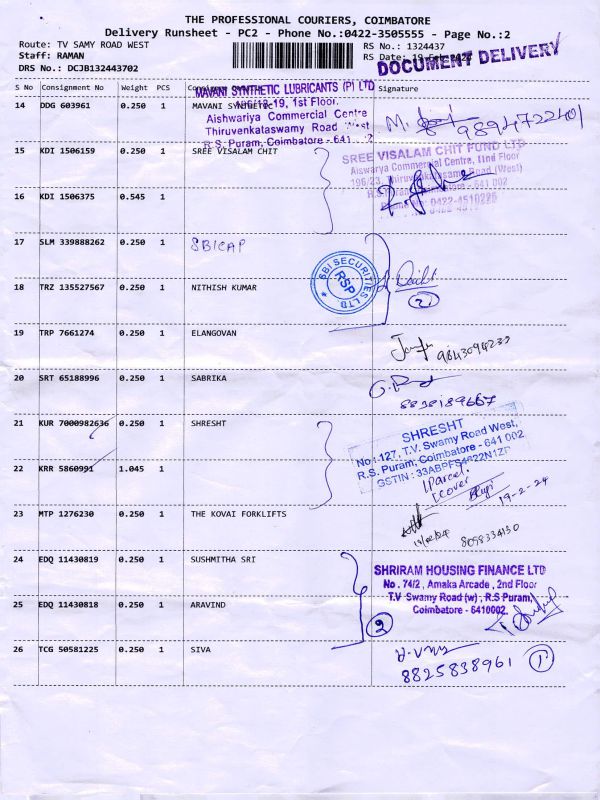 THE PROFESSIONAL COURIERS, COIMBATORE
Delivery Runsheet - PC2 - Phone No.:0422-3505555 - Page No.:2
Route: TV SAMY ROAD WEST
RS No.: 1324437
Staff: RAMAN
RS Date: 19-Feb-2024
DRS No.: DCJB132443702
DOCUMENT DELIVERY
S No Consignment No Weight PCS Signature
MAVANI SYNTHETIC LUBRICANTS (P) LTD
14 DDG 603961 0.250 1 MAVANI SYNTHETIC
1st Floor,
Aishwariya Commercial Centre
Thiruvenkataswamy Road West
R.S. Puram, Coimbatore - 641
9894722401
15 KDI 1506159 0.250 1 SREE VISALAM CHIT
SREE VISALAM CHIT FUND LTD
Aiswarya Commercial Centre, IInd Floor
196/23, Thiruvenkatasamy Road (West)
R.S. Puram, Coimbatore - 641 002
Phone: 0422-4510225
16 KDI 1506375 0.545 1
17 SLM 339888262 0.250 1 SBICAP
SBI SECURITIES LTD
RSP
18 TRZ 135527567 0.250 1 NITHISH KUMAR
2
19 TRP 7661274 0.250 1 ELANGOVAN
9843094233
20 SRT 65188996 0.250 1 SABRIKA
8838189667
21 KUR 7000982636 0.250 1 SHRESHT
SHRESHT
No:127, T.V. Swamy Road West,
R.S. Puram, Coimbatore - 641 002
GSTIN : 33ABPFS4622N1ZP
22 KRR 5860991 1.045 1
1 Parcel
1 cover
19-2-24
23 MTP 1276230 0.250 1 THE KOVAI FORKLIFTS
19/02/24 8098334130
24 EDQ 11430819 0.250 1 SUSHMITHA SRI
SHRIRAM HOUSING FINANCE LTD
No. 74/2, Amaka Arcade, 2nd Floor
T.V Swamy Road (w), R.S Puram,
Coimbatore - 6410002.
25 EDQ 11430818 0.250 1 ARAVIND
2
26 TCG 50581225 0.250 1 SIVA
8825838961 1